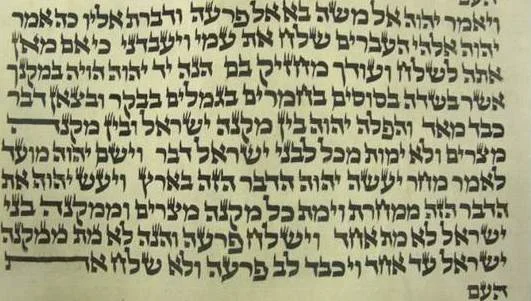 ויאמר יהוה אל משה בא אל פרעה ודברת אליו כה אמר
יהוה אלהי העברים שלח את עמי ויעבדני כי אם מאן
אתה לשלח ועודך מחזיק בם הנה יד יהוה הויה במקנך
אשר בשדה בסוסים בחמרים בגמלים בבקר ובצאן דבר
כבד מאד והפלה יהוה בין מקנה ישראל ובין מקנה
מצרים ולא ימות מכל לבני ישראל דבר וישם יהוה מועד
לאמר מחר יעשה יהוה הדבר הזה בארץ ויעש יהוה את
הדבר הזה ממחרת וימת כל מקנה מצרים וממקנה בני
ישראל לא מת אחד וישלח פרעה והנה לא מת ממקנה
ישראל עד אחד ויכבד לב פרעה ולא שלח את
העם